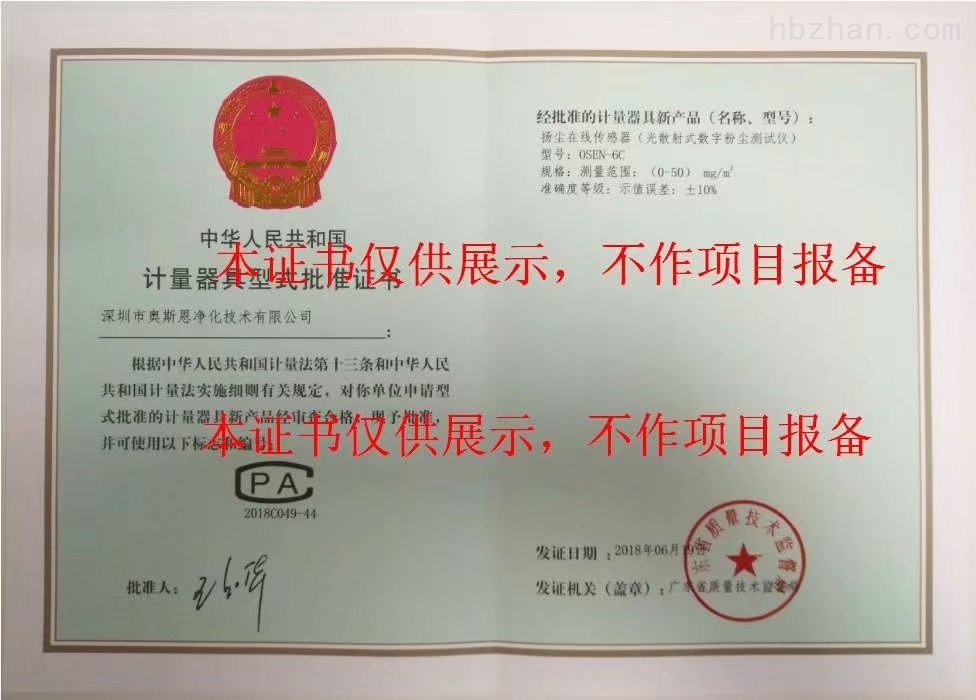 hbzhan.com
中华人民共和国
计量器具型式批准证书
深圳市奥斯恩净化技术有限公司
:
根据中华人民共和国计量法第十三条和中华人民
共和国计量法实施细则有关规定，对你单位申请型
式批准的计量器具新产品经审查合格，现予批准，
并可使用以下标志和编号
CPA
2018C049-44
批准人：
经批准的计量器具新产品（名称、型号）：
扬尘在线传感器（光散射式数字粉尘测试仪）
型号：OSEN-6C
规格：测量范围：（0-50） mg/m³
准确度等级：示值误差：±10%
本证书仅供展示，不作项目报备
本证书仅供展示，不作项目报备
发证日期：2018年06月19日
发证机关（盖章）：广东省质量技术监督局
东省质量技术监督